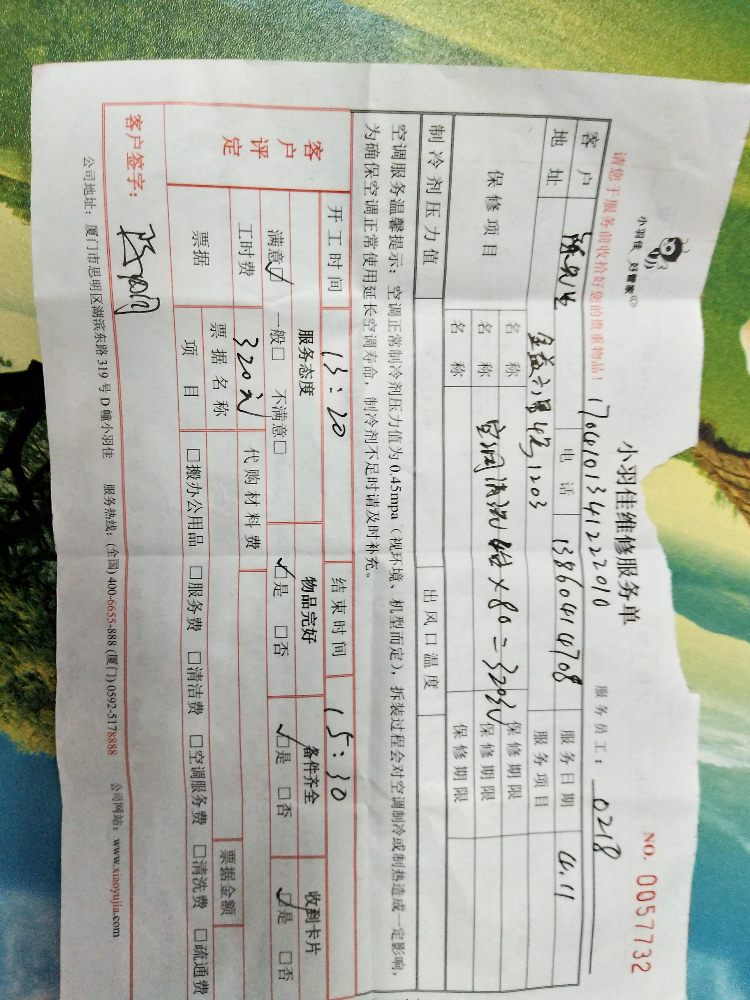 小羽佳 好管家
小羽佳维修服务单
NO. 0057732
1704101341222010
服务员工: 0218
请您于服务前收拾好您的贵重物品!
客户 陈先生 电话 13860414708 服务日期 4.11
地址 金益六里4号1203 服务项目
保修项目 名称 保修期限
名称 空调清洗 4台×80=320元 保修期限
名称 保修期限
制冷剂压力值 出风口温度
空调服务温馨提示:空调正常制冷剂压力值为0.45mpa(视环境、机型而定),拆装过程会对空调制冷或制热造成一定影响,
为确保空调正常使用延长空调寿命,制冷剂不足时请及时补充。
开工时间 13:20 结束时间 15:30
客户评定 服务态度 物品完好 备件齐全 收到卡片
满意☑ 一般□ 不满意□ ☑是 □否 ☑是 □否 ☑是 □否
工时费 320元 代购材料费
票据 票据名称 票据金额
项目 □搬办公用品 □服务费 □清洁费 □空调服务费 □清洗费 □疏通费
客户签字:
公司地址:厦门市思明区湖滨东路319号D幢小羽佳 服务热线:(全国)400-6655-888 (厦门)0592-5178888 公司网站:www.xiaoyujia.com